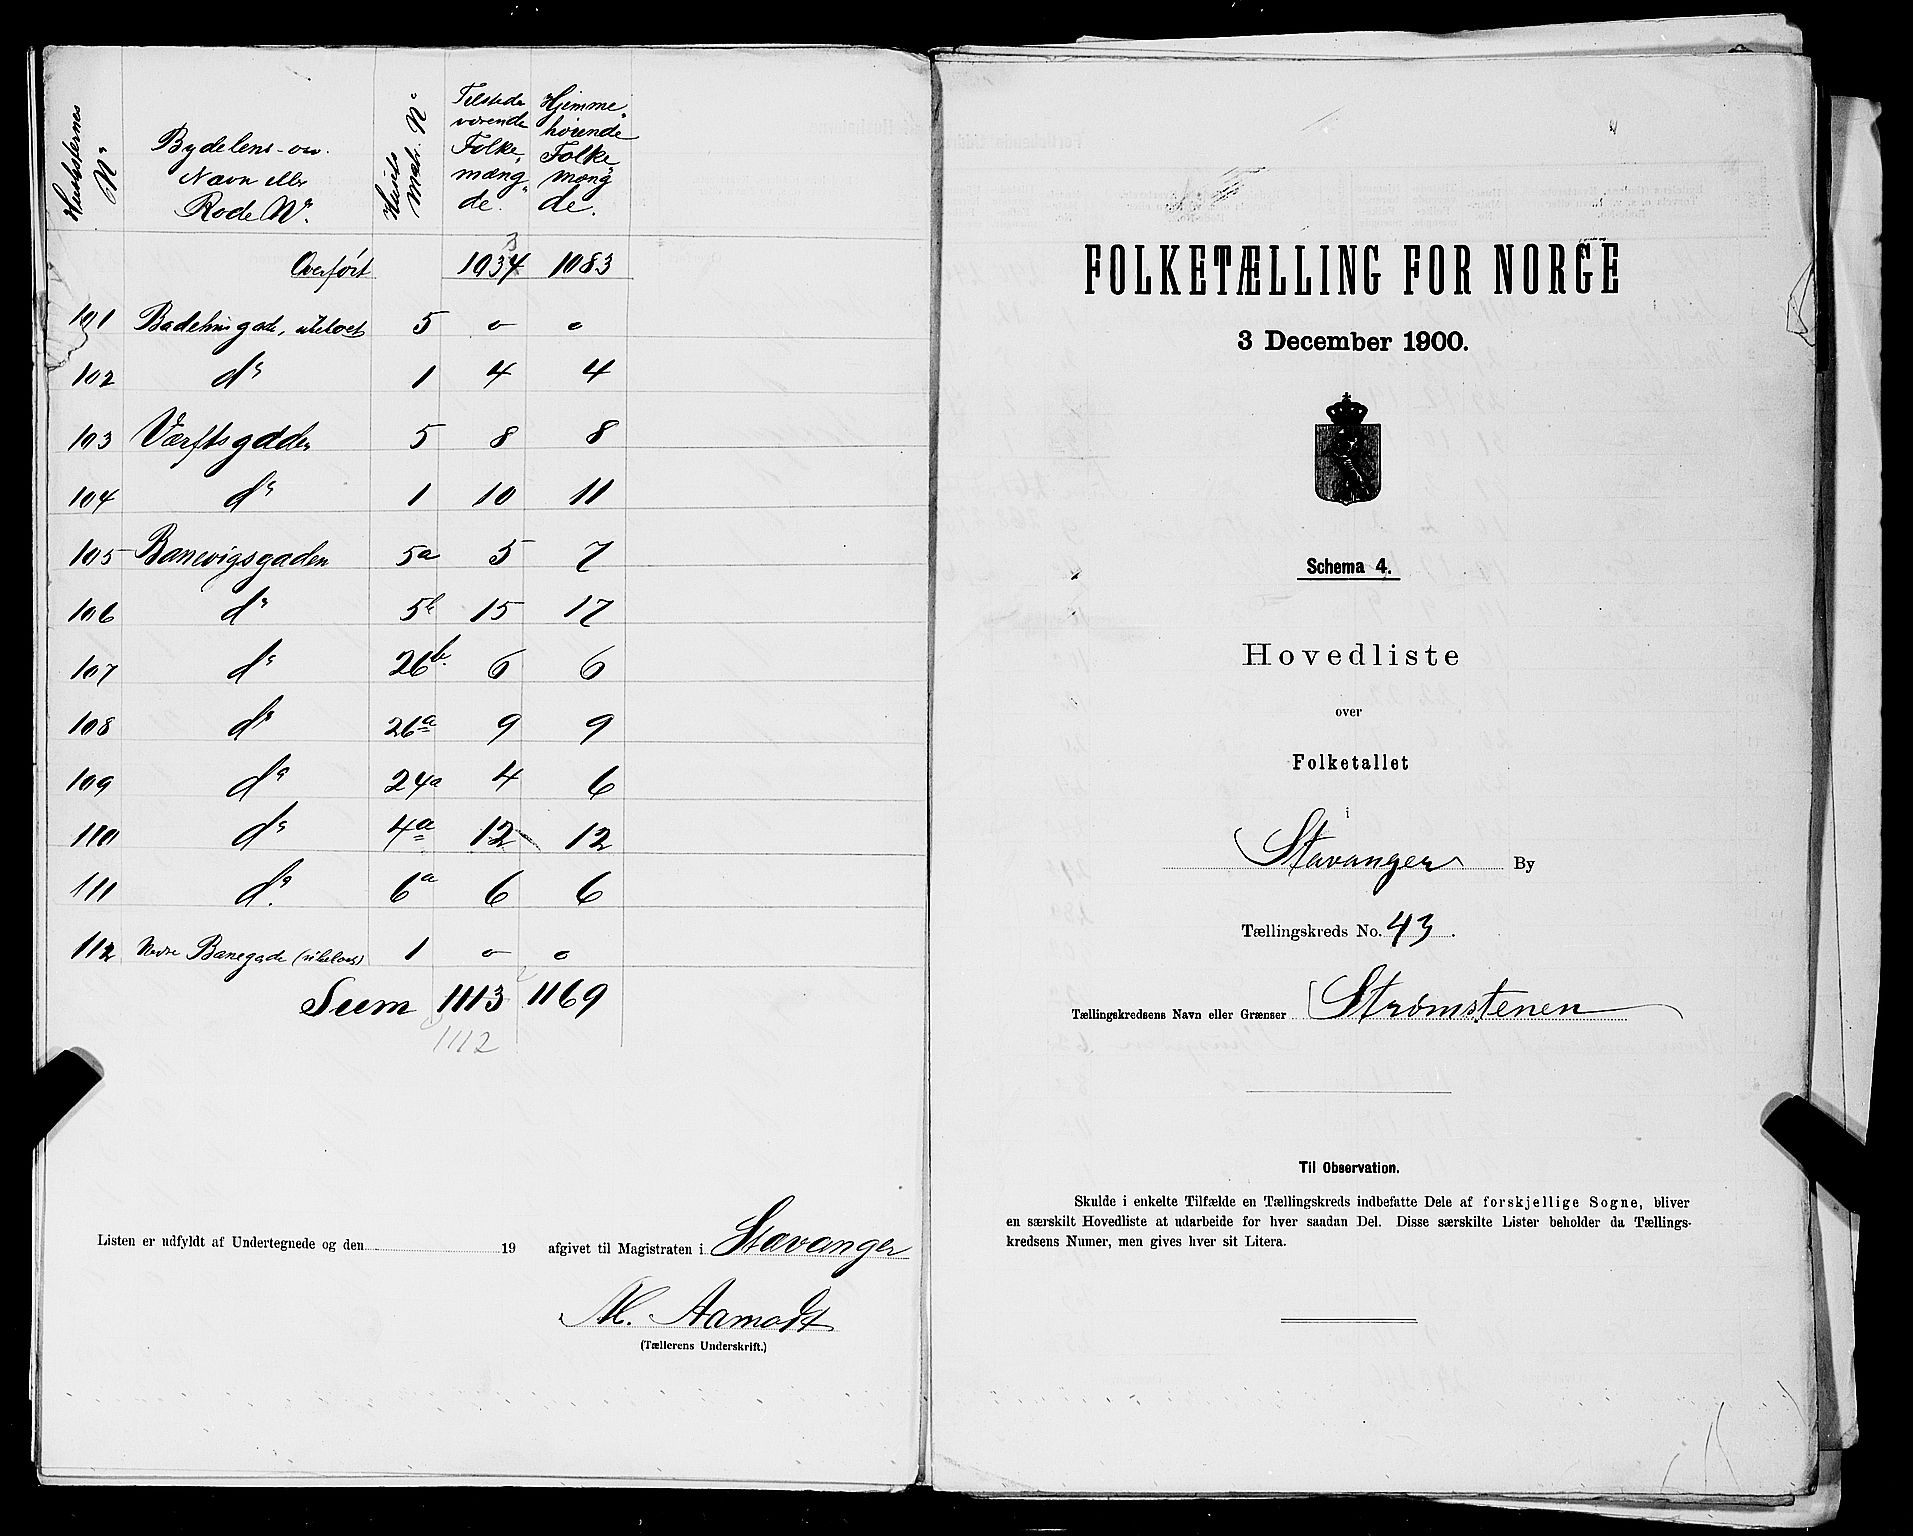 Huslisternes Nº
Bydelens-ov.
Navn eller
Rode Nr.
Husets Matr. Nº
Tilstede
værende
Folke,
mæng,,
de.
Hjemme,,
hørende
Folke
mæng
de.
3
Overført 1034 1083
101 Badehusgade, ubeboet 5 o o
102 do 1 4 4
103 Værftsgaden 5 8 8
104 do 1 10 11
105 Banevigsgaden 5a 5 7
106 do 5b 15 17
107 do 26b 6 6
108 do 26a 9 9
109 do 24a 4 6
110 do 4a 12 12
111 do. 6a 6 6
112 Nedre Banegade (ubeboet) 1 o o
Sum 1113 1169
1112
Listen er udfyldt af Undertegnede og den 19 afgivet til Magistraten i Stavanger
M. Aamodt
(Tællerens Underskrift.)
FOLKETÆLLING FOR NORGE
3 December 1900.
Schema 4.
Hovedliste
over
Folketallet
i
Stavanger By
Tællingskreds No. 43.
Tællingskredsens Navn eller Grænser Strømstenen
Til Observation.
Skulde i enkelte Tilfælde en Tællingskreds indbefatte Dele af forskjellige Sogne, bliver
en særskilt Hovedliste at udarbeide for hver saadan Del. Disse særskilte Lister beholder da Tællings-
kredsens Numer, men gives hver sit Litera.